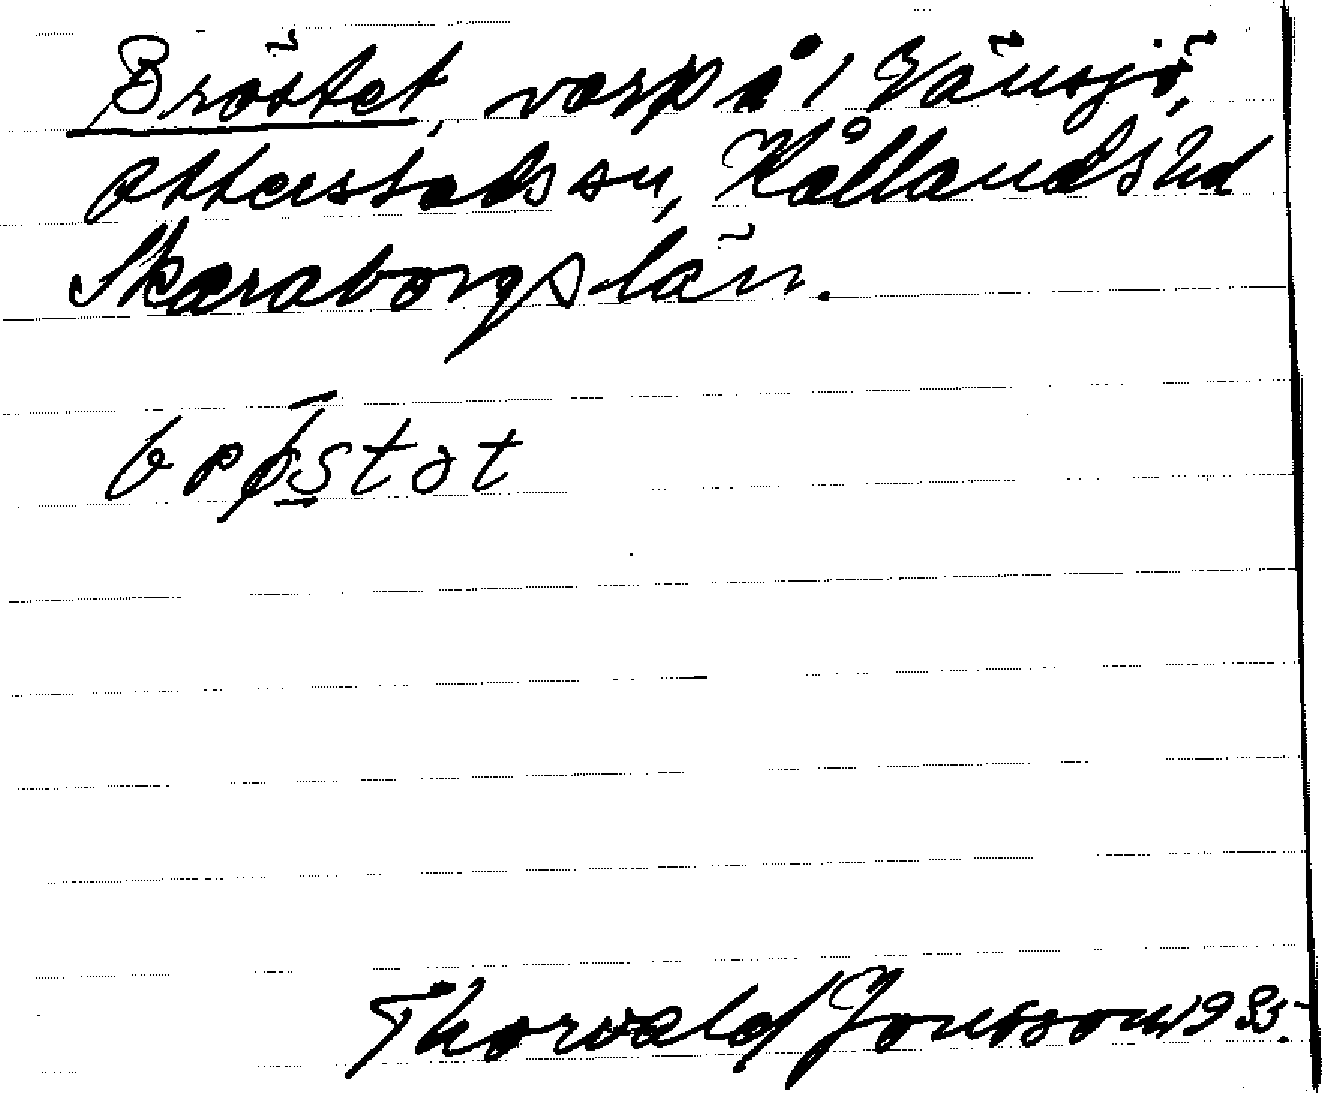 Bröstet, varp å / Vänsjö,
Otterstads sn, Kållands hd
Skaraborgs län.
brøstat
Thorvald Jonsson 1933.